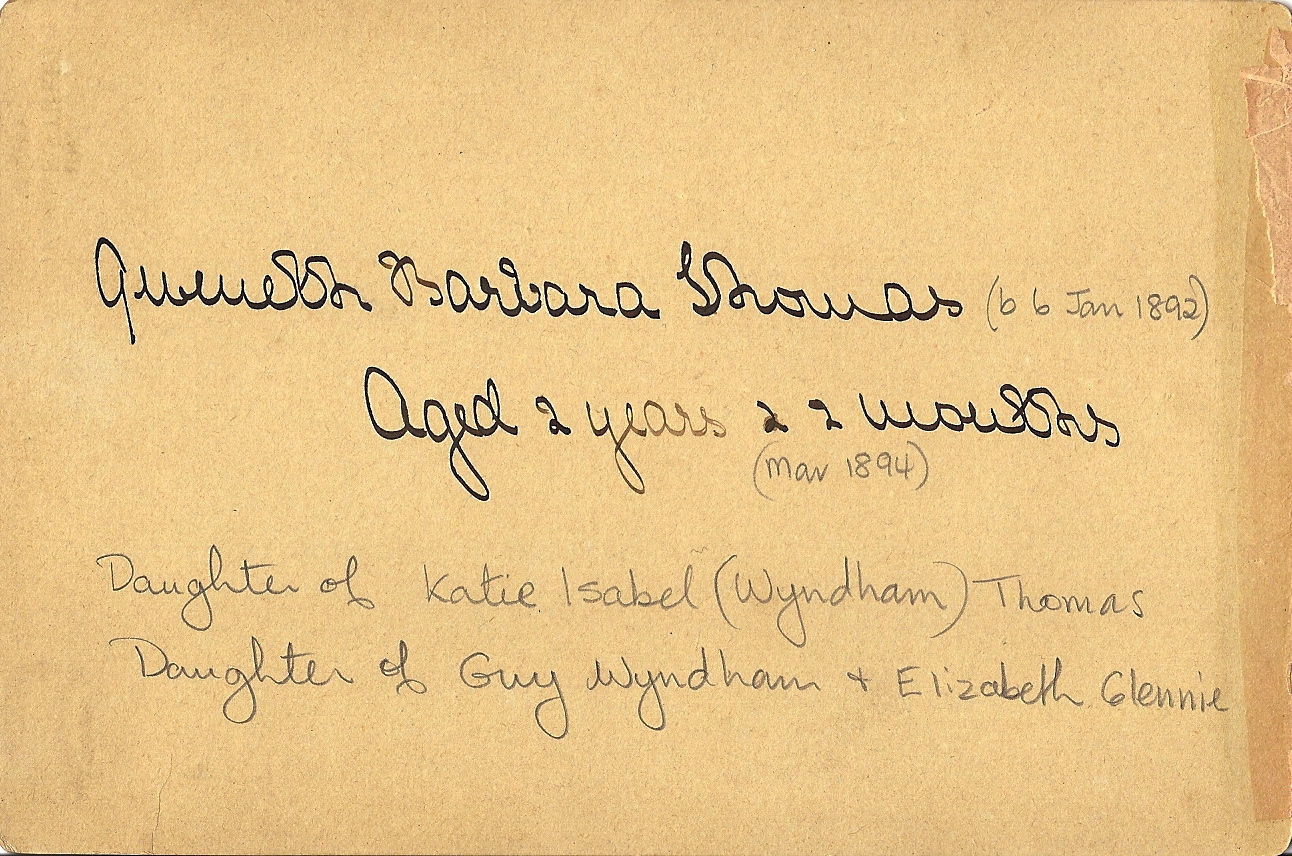 Gweneth Barbara Thomas (b 6 Jan 1892)
Aged 2 years & 2 months
(Mar 1894)
Daughter of Katie Isabel (Wyndham) Thomas
Daughter of Guy Wyndham + Elizabeth Glennie